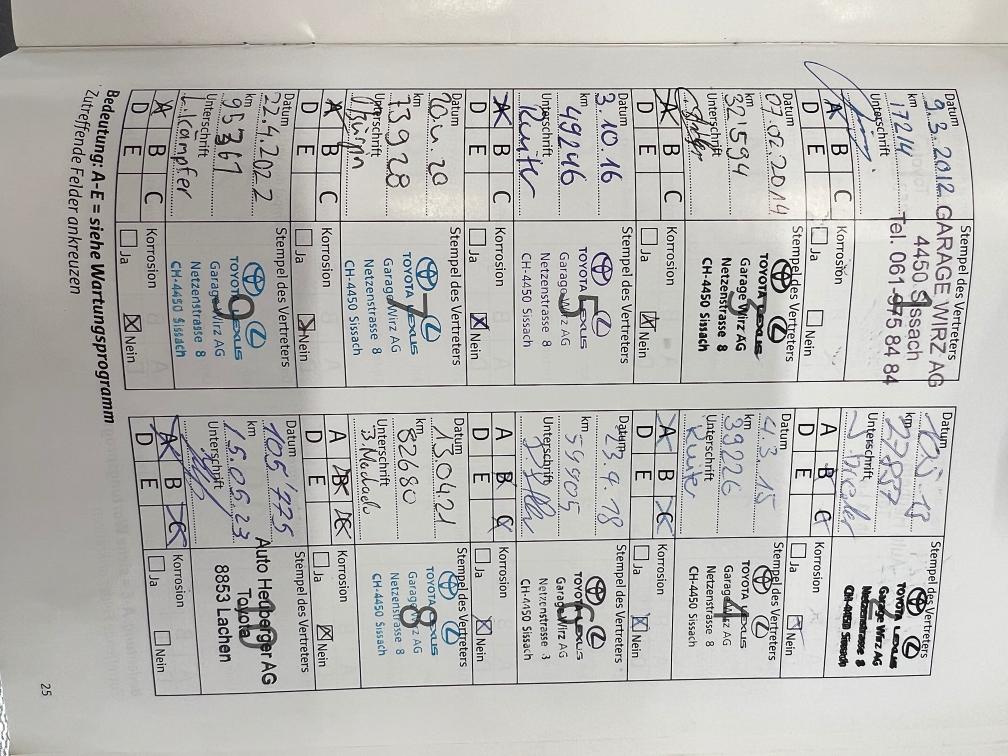 Datum
9.3.2012
km
17214
Unterschrift
A B C
D E
Stempel des Vertreters
GARAGE WIRZ AG
4450 Sissach
Tel. 061-975 84 84
1
Korrosion
Ja Nein
Datum
km
22887
Unterschrift
A B C
D E
Stempel des Vertreters
TOYOTA LEXUS
Garage Wirz AG
Netzenstrasse 8
CH-4450 Sissach
Korrosion
Ja Nein
Datum
07.02.2014
km
321594
Unterschrift
A B C
D E
Stempel des Vertreters
TOYOTA LEXUS
Garage Wirz AG
Netzenstrasse 8
CH-4450 Sissach
3
Korrosion
Ja Nein
Datum
4.3.15
km
39226
Unterschrift
A B C
D E
Stempel des Vertreters
TOYOTA LEXUS
Garage Wirz AG
Netzenstrasse 8
CH-4450 Sissach
4
Korrosion
Ja Nein
Datum
3.10.16
km
49246
Unterschrift
A B C
D E
Stempel des Vertreters
TOYOTA LEXUS
Garage Wirz AG
Netzenstrasse 8
CH-4450 Sissach
5
Korrosion
Ja Nein
Datum
23.4.18
km
59905
Unterschrift
A B C
D E
Stempel des Vertreters
TOYOTA LEXUS
Garage Wirz AG
Netzenstrasse 8
CH-4450 Sissach
6
Korrosion
Ja Nein
Datum
km
73928
Unterschrift
A B C
D E
Stempel des Vertreters
TOYOTA LEXUS
Garage Wirz AG
Netzenstrasse 8
CH-4450 Sissach
7
Korrosion
Ja Nein
Datum
13.04.21
km
82680
Unterschrift
A B C
D E
Stempel des Vertreters
TOYOTA LEXUS
Garage Wirz AG
Netzenstrasse 8
CH-4450 Sissach
8
Korrosion
Ja Nein
Datum
22.4.2022
km
95367
Unterschrift
A B C
D E
Stempel des Vertreters
TOYOTA LEXUS
Garage Wirz AG
Netzenstrasse 8
CH-4450 Sissach
9
Korrosion
Ja Nein
Datum
105'775
km
15.05.23
Unterschrift
A B C
D E
Stempel des Vertreters
Auto Herberger AG
Toyota
8853 Lachen
Korrosion
Ja Nein
Bedeutung: A-E = siehe Wartungsprogramm
Zutreffende Felder ankreuzen
25